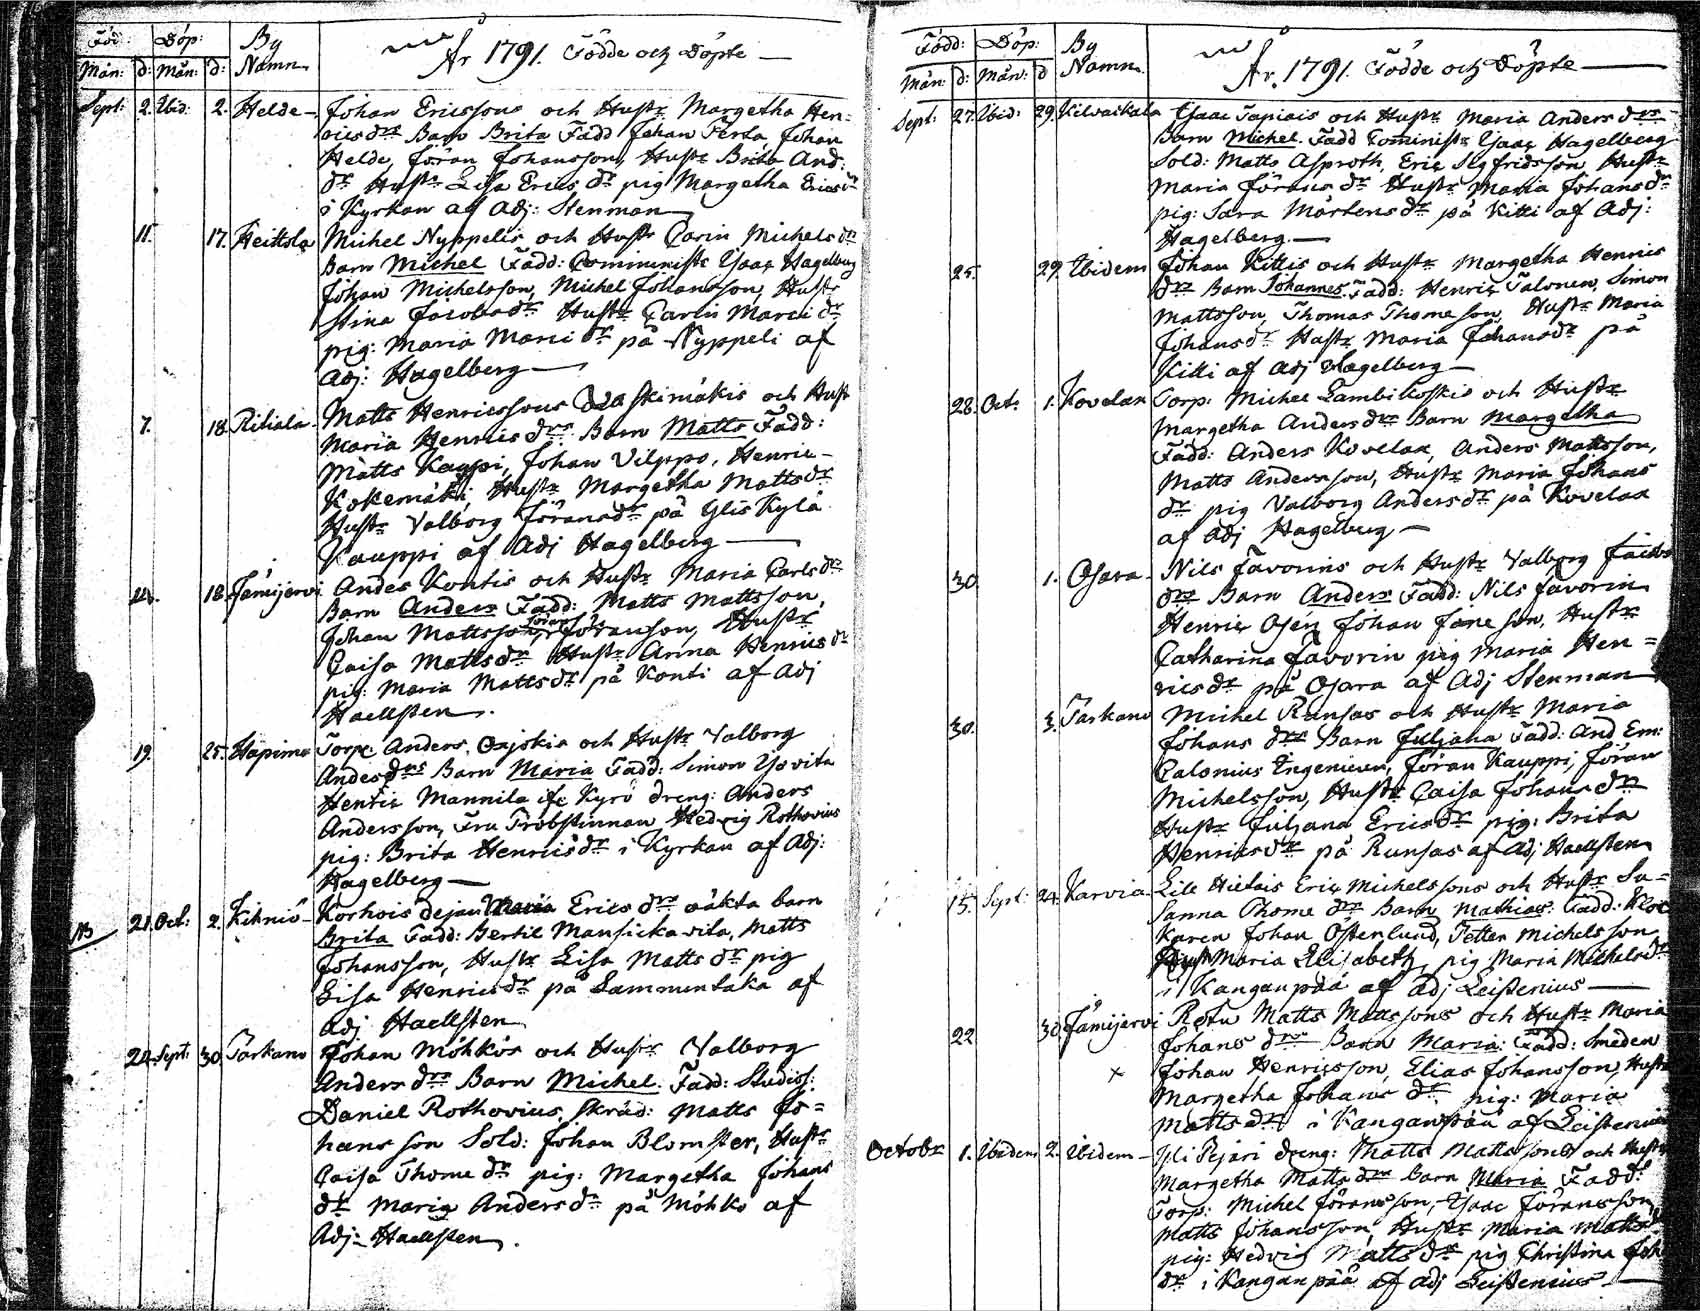 Föd: Döp: By År 1791. Födde och Döpte
Mån: d: Mån: d: Namn
Sept: 2. Ibid: 2. Helde Johan Ericssons och Hustr Margetha Hen-
ricsdrs Barn Brita Fadd Johan Johan
Helde, Jöran Johansson, Hustr Brita And:
dr Hustr Lisa Erics dr pig Margetha Erics dr
i Kyrkan af Adj: Stenman
11. 17. Heittola Michel Nyppelis och Hustr Carin Michels drs
Barn Michel Fadd: Comministr Isaac Hagelberg
Johan Michelsson, Michel Johansson, Hustr
Stina Jacobs dr Hustr Carin Marci dr
pig: Maria Marci dr på Nyppeli af
Adj: Hagelberg
7. 18. Riihiala Matts Henricssons Waskimäkis och Hustr
Maria Henrics drs Barn Matts Fadd:
Matts Kauppi, Johan Vilppo, Henric
Kokemäki, Hustr Margetha Matts dr
Hustr Valborg Jörans dr på Ylis Kylä
Kauppi af Adj Hagelberg
18. Jämijervi Anders Kontis och Hustr Maria Carls drs
Barn Anders Fadd: Matts Mattsson,
Johan Mattsson, Jöran Jöransson, Hustr
Caisa Matts dr Hustr Anna Henrics dr
pig: Maria Matts dr på Konti af Adj
Haellsten.
19. 25. Hapima Torp: Anders Ojoskis och Hustr Valborg
Anders drs Barn Maria Fadd: Simon Yovita
Henric Mannila ifr Kyrö dreng: Anders
Andersson, Fru Probstinnan Hedvig Rothovius
pig: Brita Henrics dr i Kyrkan af Adj:
Hagelberg
NB 21. Oct: 2. Kihniö Korhois dejan Maria Erics drs oäkta barn
Brita Fadd: Bertil Mansickavita, Matts
Johansson, Hustr Lisa Matts dr pig
Lisa Henrics dr på Lammintaka af
Adj Haellsten
24. Sept: 30. Parkano Johan Möhkös och Hustr Valborg
Anders drs Barn Michel. Fadd: Studios:
Daniel Rothovius, Skräd: Matts Jo-
hansson Sold: Johan Blomster, Hustr
Caisa Thome dr pig: Margetha Johans
dr Maria Anders dr på Möhkö af
Adj: Haellsten.
Född: Döp: By År. 1791. Födde och Döpte
Mån: d: Mån: d Namn
Sept: 27. Ibid: 29. Kilvaikala Isaac Tapiois och Hustr Maria Anders drs
Barn Michel. Fadd Comministr Isaac Hagelberg
Sold: Matts Asproth, Eric Sigfridsson Hustr
Maria Jörans dr Hustr Maria Johans dr
pig: Sara Mårtens dr på Kitti af Adj:
Hagelberg.
25. 29. Ibidem Johan Kittis och Hustr Margetha Henrics
drs Barn Johannes. Fadd: Henric Talonen, Simon
Mattsson, Thomas Thomesson, Hustr Maria
Johans dr Hustr Maria Johans dr på
Kitti af Adj Hagelberg
28. Oct: 1. Kovelax Torp: Michel Lambikoskis och Hustr
Margetha Anders drs Barn Margetha
Fadd: Anders Kovelax, Anders Mattsson,
Matts Andersson, Hustr Maria Johans
dr pig Valborg Anders dr på Kovelax
af Adj Hagelberg
30 1. Osara Nils Favorins och Hustr Valborg Jacobs
drs Barn Anders Fadd: Nils Favorin
Henric Osen Johan Janesson, Hustr
Catharina Favorin pig Maria Hen-
rics dr på Osara af Adj Stenman
30. 3. Parkano Michel Runsas och Hustr Maria
Johans drs Barn Juliana Fadd: And Em:
Calonius Ingenieur, Jöran Kauppi, Jöran
Michelsson, Hustr Caisa Johans dr
Hustr Juliana Erics dr pig: Brita
Henrics dr på Runsas af Adj Haellsten
15. Sept: 24. Karvia Lill Hietais Eric Michelssons och Hustr Su-
sanna Thome drs Barn Mathias. Fadd: Kloc
karen Johan Österlund, Petter Michelsson
Hustr Maria Elisabeth, pig Maria Michels dr
i Kanganpää af Adj Leistenius
22 30 Jämijervi Rotu Matts Mattssons och Hustr Maria
Johans drs Barn Maria. Fadd: Smeden
x Johan Henricsson, Elias Johansson, Hustr
Margetha Johans dr pig: Maria
Matts dr i Kanganpää af Leistenius
Octobr 1. Ibidem 2. Ibidem Yli Pejari dreng: Matts Mattssons och Hustr
Margetha Matts drs Barn Maria Fadd:
Torp: Michel Jöransson, Isaac Jöransson
Matts Johansson, Hustr Maria Matts dr
pig: Hedvig Matts dr pig Christina Joh
dr i Kanganpää af Adj Leistenius